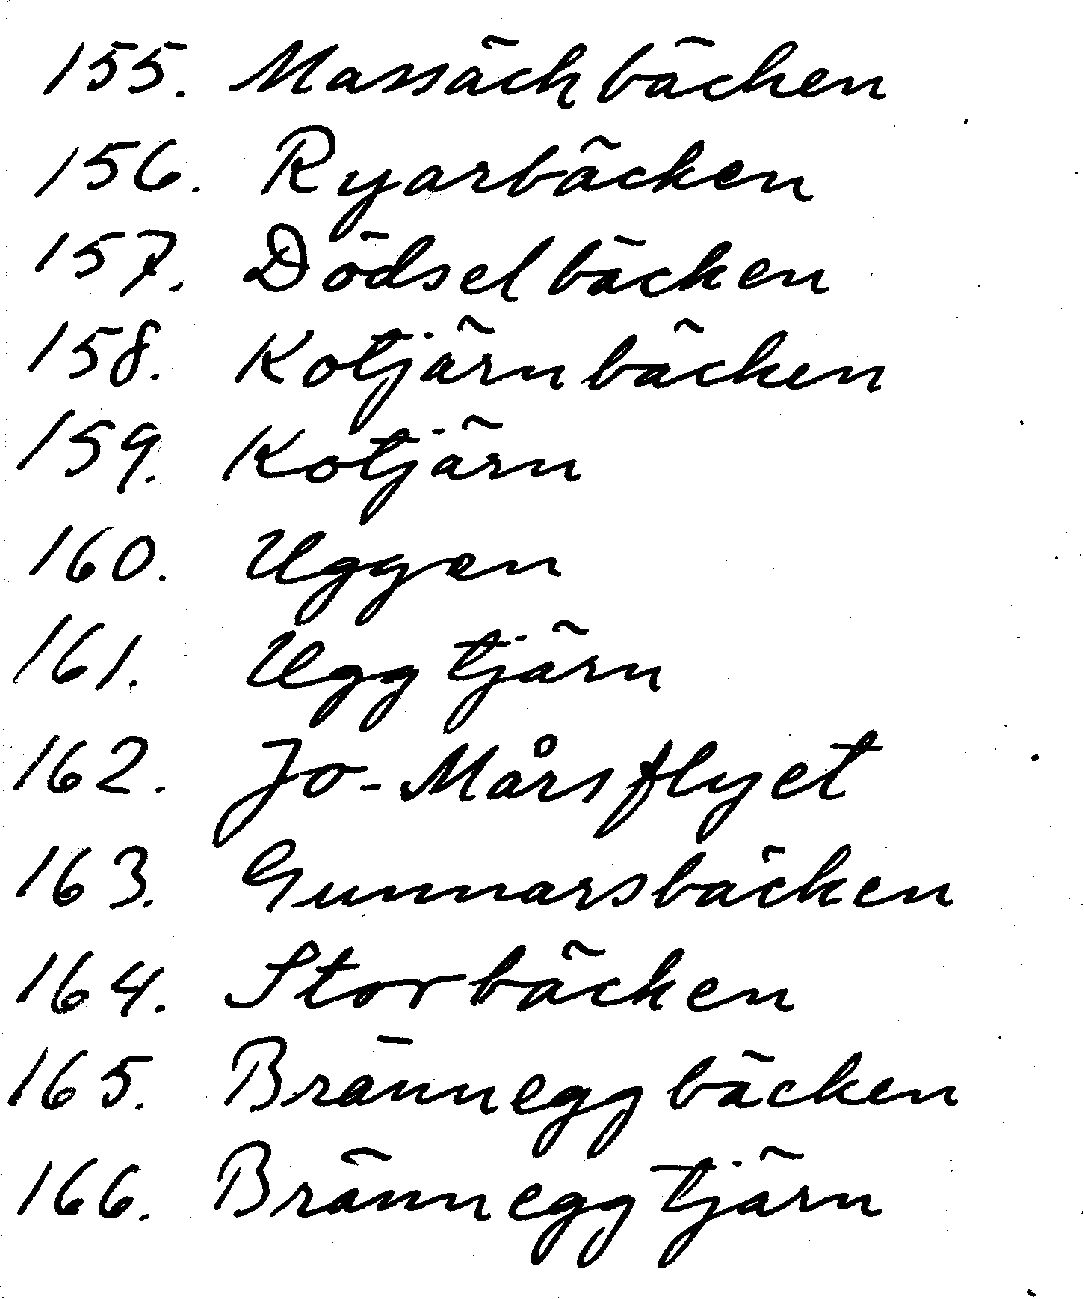 155. Massäckbäcken
156. Ryarbäcken
157. Dödselbäcken
158. Kotjärnbäcken
159. Kotjärn
160. Uggen
161. Uggtjärn
162. Jo-Mårsflyet
163. Gunnarsbäcken
164. Storbäcken
165. Bränneggbäcken
166. Bränneggtjärn